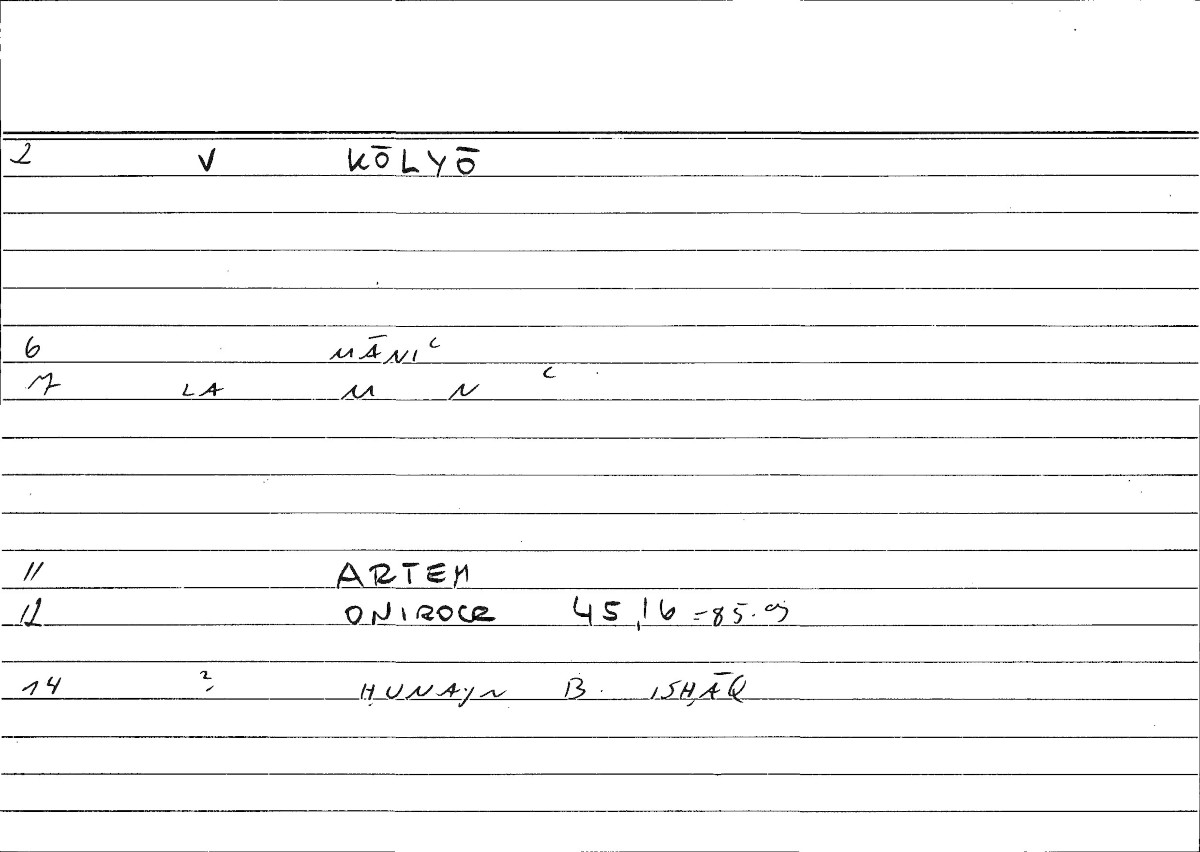 2 V KŌLYŌ
6 MĀNIʿ
7 LA M N ʿ
11 ARTEM
12 ONIROCR 45,16 =85.9
14 2; ḤUNAYN B. ISḤĀQ